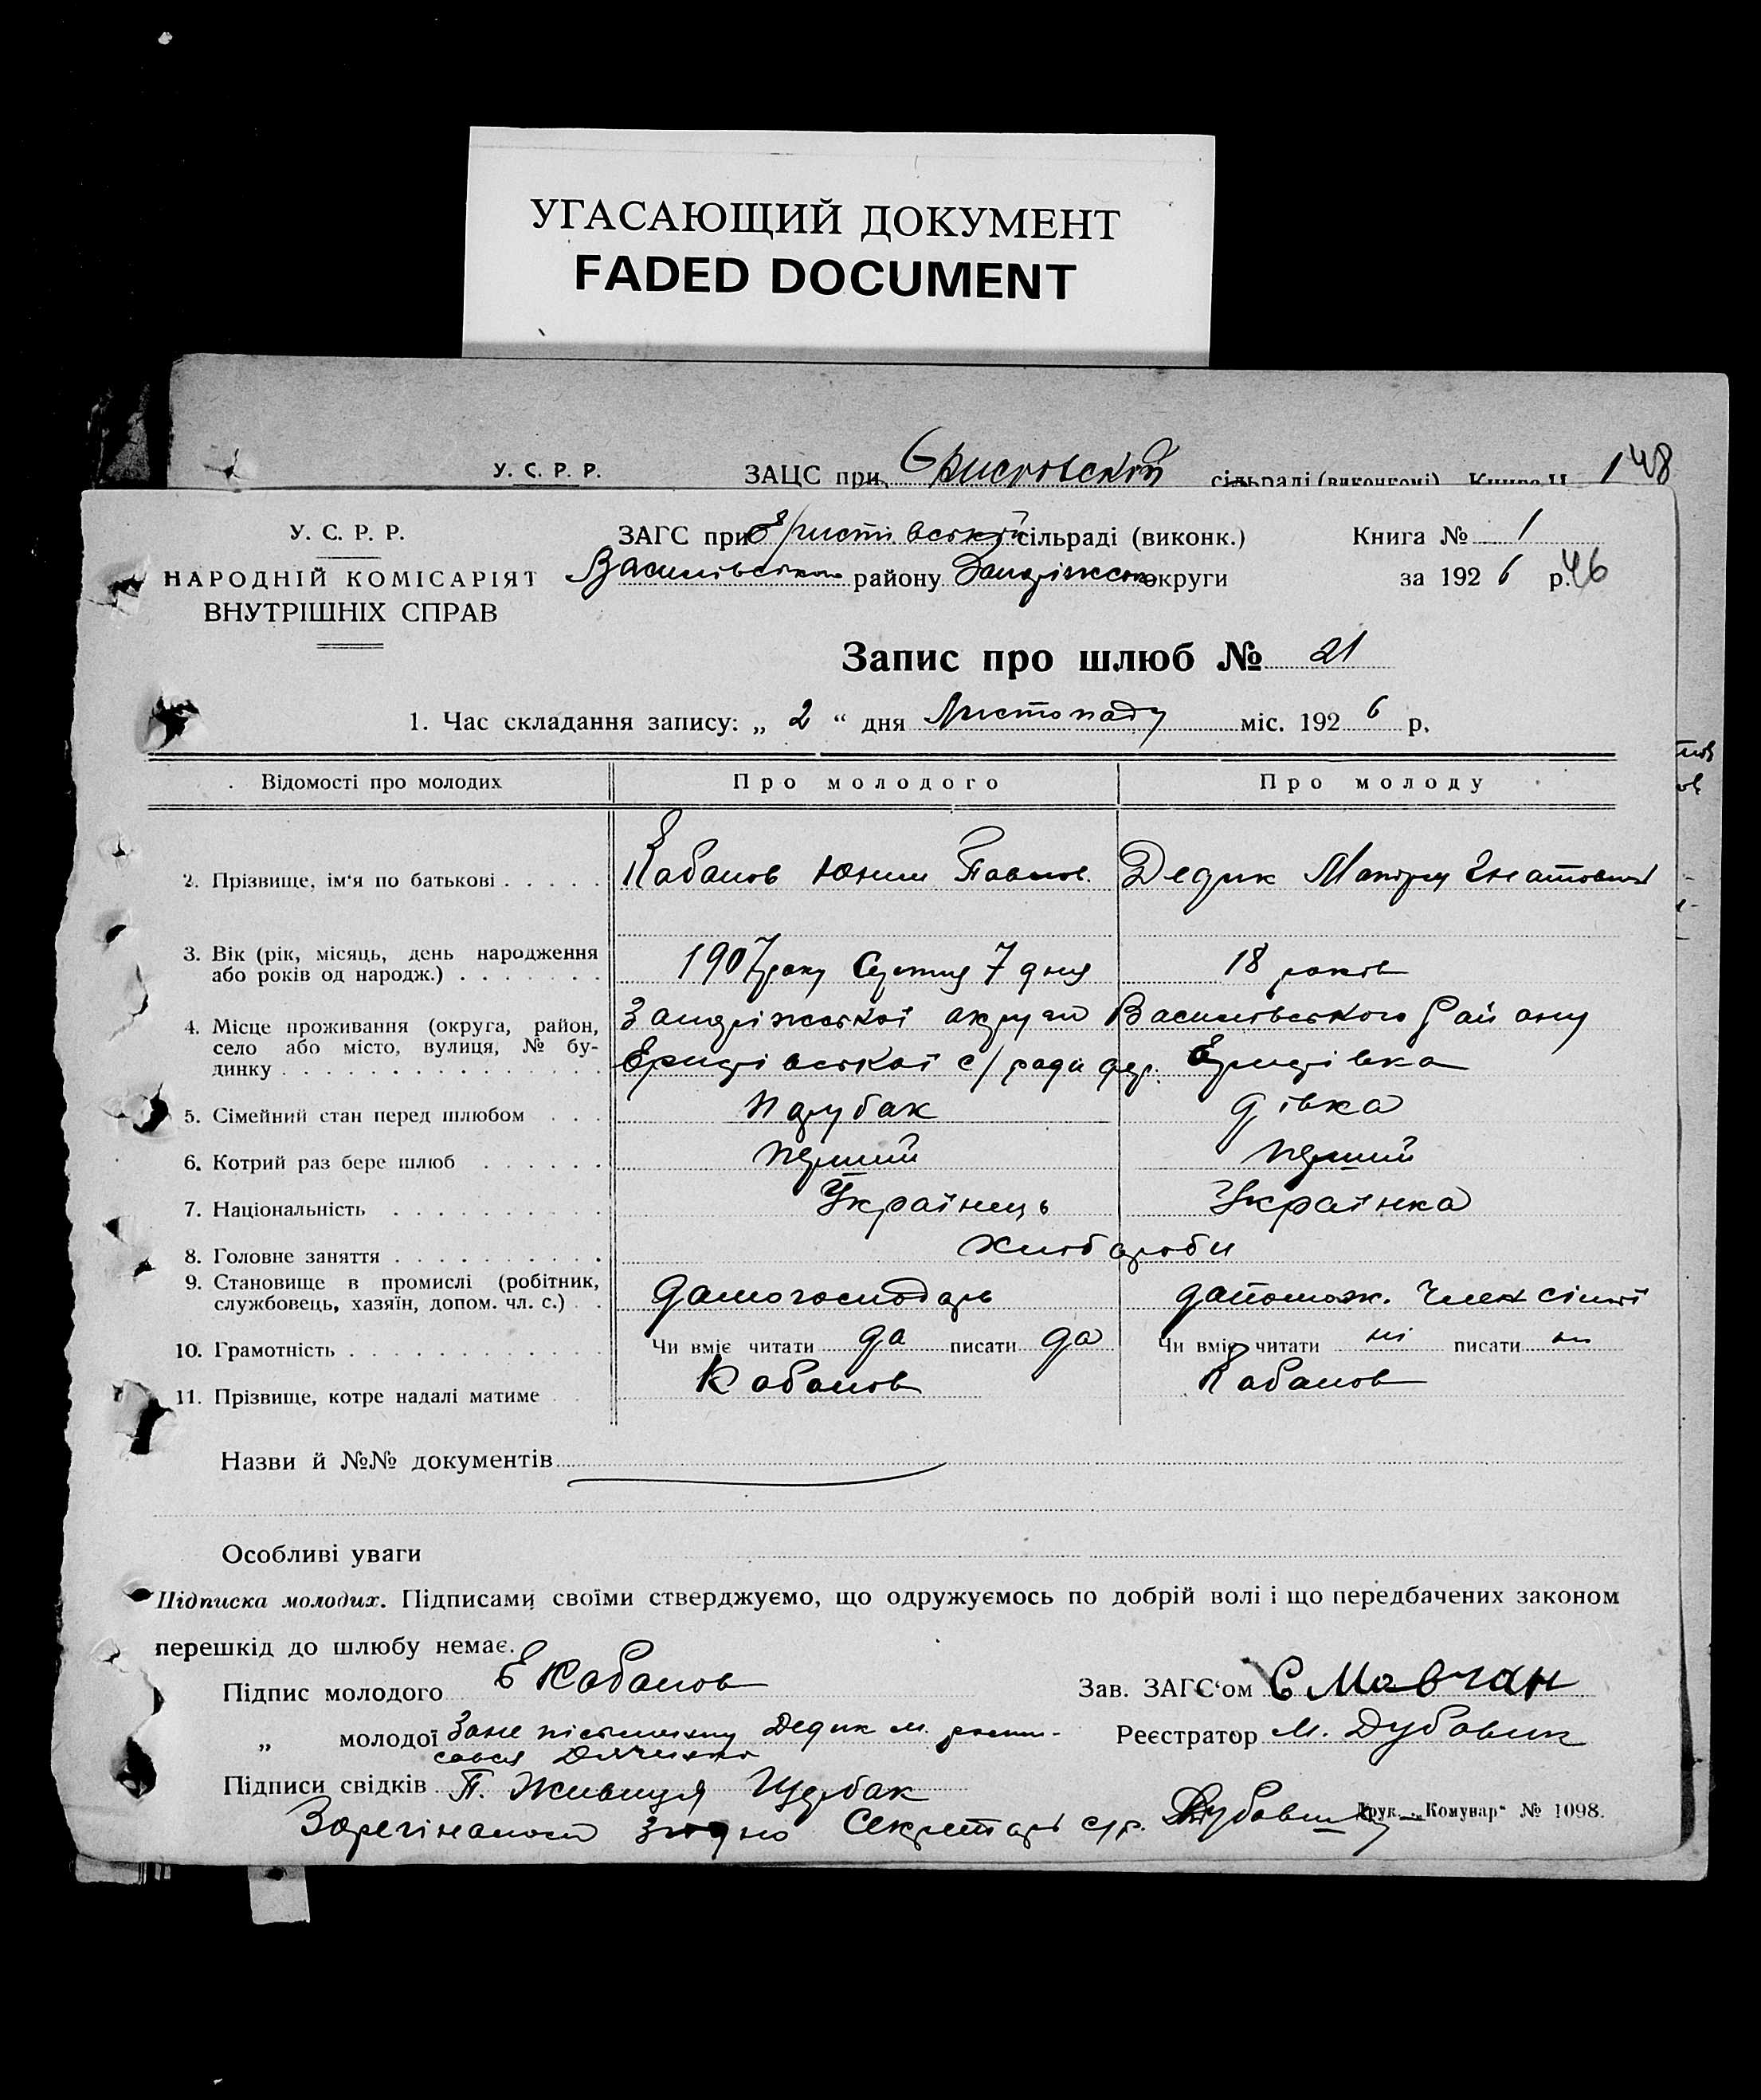 УГАСАЮЩИЙ ДОКУМЕНТ
FADED DOCUMENT
У. С. Р. Р. ЗАЦС при сільраді (виконкомі) Книга Ч. 1 48
У. С. Р. Р. ЗАГС при сільраді (виконк.) Книга № 1
НАРОДНІЙ КОМІСАРІЯТ Василівського району округи за 192 6 р. 46
ВНУТРІШНІХ СПРАВ
Запис про шлюб № 21
1. Час складання запису: „ 2 “ дня Листопаду міс. 192 6 р.
Відомості про молодих Про молодого Про молоду
2. Прізвище, ім‘я по батькові Кабанов Павлов. Дедик
3. Вік (рік, місяць, день народження
або років од народж.) 1907 року 7 дня 18 років
4. Місце проживання (округа, район, Запоріжської округи Василівського Району
село або місто, вулиця, № бу-
динку с/ради
5. Сімейний стан перед шлюбом парубак дівка
6. Котрий раз бере шлюб перший перший
7. Національність Українець Українка
8. Головне заняття
9. Становище в промислі (робітник,
службовець, хазяїн, допом. чл. с.) допомож. член сімї
10. Грамотність Чи вміє читати да писати да Чи вміє читати ні писати ні
11. Прізвище, котре надалі матиме Кабанов Кабанов
Назви й №№ документів
Особливі уваги
Підписка молодих. Підписами своїми стверджуємо, що одружуємось по добрій волі і що передбачених законом
перешкід до шлюбу немає.
Підпис молодого Кабанов Зав. ЗАГС‘ом Є Мовчан
„ молодої Дедик м. Реєстратор М. Дубовик
Підписи свідків П. Живиця Щербак
згідно Секретарь с/р. Друк. „Комунар“ № 1098.